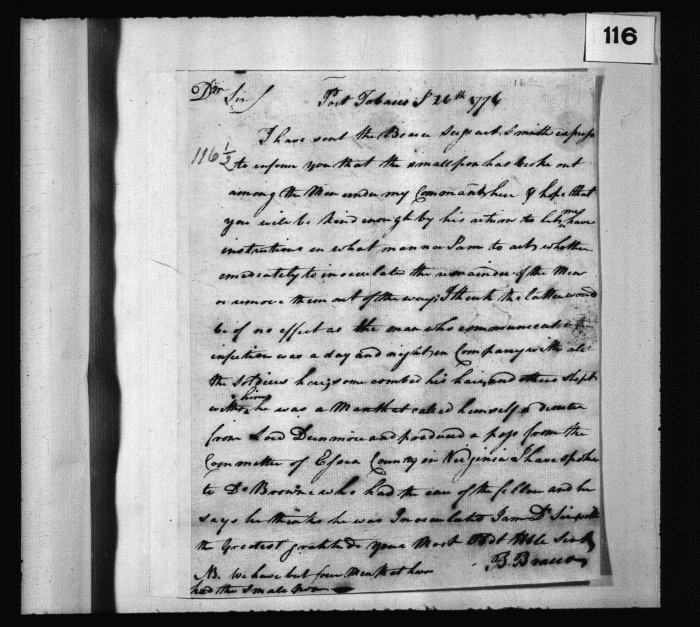 116
Dr Sir
Port Tobacco 26th 1776
I have sent the Bearer Sergeant Smith express
116 1/2
to inform you that the smallpox has broke out
among the Men under my Command here & hope that
you will be kind enough by his return to let me have
instructions in what manner I am to act, whether
emediately to inoculate the remainder of the Men
or remove them out of the way; I think the latter wou'd
be of no effect as the man who communicated the
infection was a day and night in Company with all
the Soldiers here, some combed his hair, and others slept
with him, he was a Man that called himself a deserter
from Lord Dunmore and produced a pass from the
Committee of Essex County in Virginia I have spoke
to Dr Brown who had the care of the fellow and he
says he thinks he was Inoculated I am Dr Sir with
the Greatest gratitude your Most Obdt Hble Servt
B.
NB. We have but four Men that have
had the Small Pox